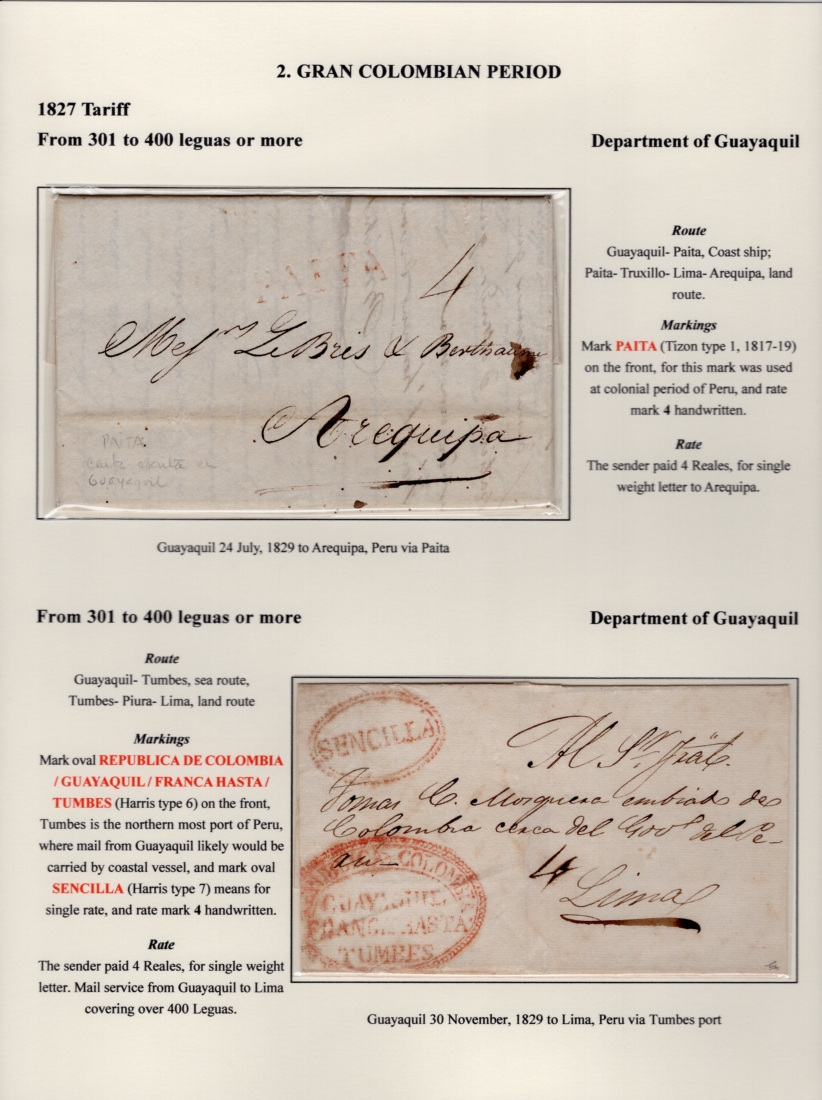 2. GRAN COLOMBIAN PERIOD
1827 Tariff
From 301 to 400 leguas or more
Department of Guayaquil
PAITA
4
Mess.rs LeBris & Berthaume
Arequipa
PAITA
Guayaquil
Route
Guayaquil- Paita, Coast ship;
Paita- Truxillo- Lima- Arequipa, land
route.
Markings
Mark PAITA (Tizon type 1, 1817-19)
on the front, for this mark was used
at colonial period of Peru, and rate
mark 4 handwritten.
Rate
The sender paid 4 Reales, for single
weight letter to Arequipa.
Guayaquil 24 July, 1829 to Arequipa, Peru via Paita
From 301 to 400 leguas or more
Department of Guayaquil
Route
Guayaquil- Tumbes, sea route,
Tumbes- Piura- Lima, land route
Markings
Mark oval REPUBLICA DE COLOMBIA
/ GUAYAQUIL / FRANCA HASTA /
TUMBES (Harris type 6) on the front,
Tumbes is the northern most port of Peru,
where mail from Guayaquil likely would be
carried by coastal vessel, and mark oval
SENCILLA (Harris type 7) means for
single rate, and rate mark 4 handwritten.
Rate
The sender paid 4 Reales, for single weight
letter. Mail service from Guayaquil to Lima
covering over 400 Leguas.
SENCILLA
Al Sr. Gral.
Tomas C. Mosquera embiado de
Colombia cerca del Govo. del Pe-
ru-
4
Lima
COLOMBIA
GUAYAQUIL
FRANCA HASTA
TUMBES
Guayaquil 30 November, 1829 to Lima, Peru via Tumbes port